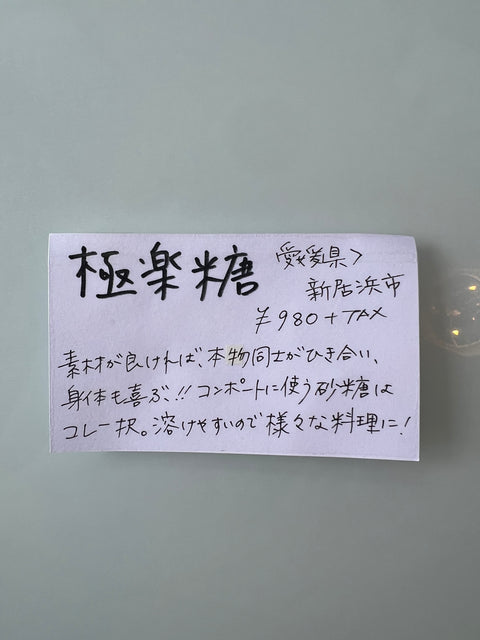 極楽糖
愛媛県>
新居浜市
¥980+TAX
素材が良ければ、本物同士がひき合い、
身体も喜ぶ!! コンポートに使う砂糖は
コレ一択。溶けやすいので様々な料理に!